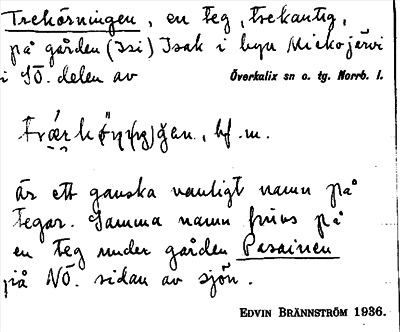 Trekörningen, en teg, trekantig,
på gården (Isi) Isak i byn Mickojärvi
i SÖ. delen av
Överkalix sn o. tg. Norrb. l.
bf. m.
är ett ganska vanligt namn på
tegar. Samma namn finns på
en teg under gården Pasainen
på NÖ. sidan av sjön.
EDVIN BRÄNNSTRÖM 1936.